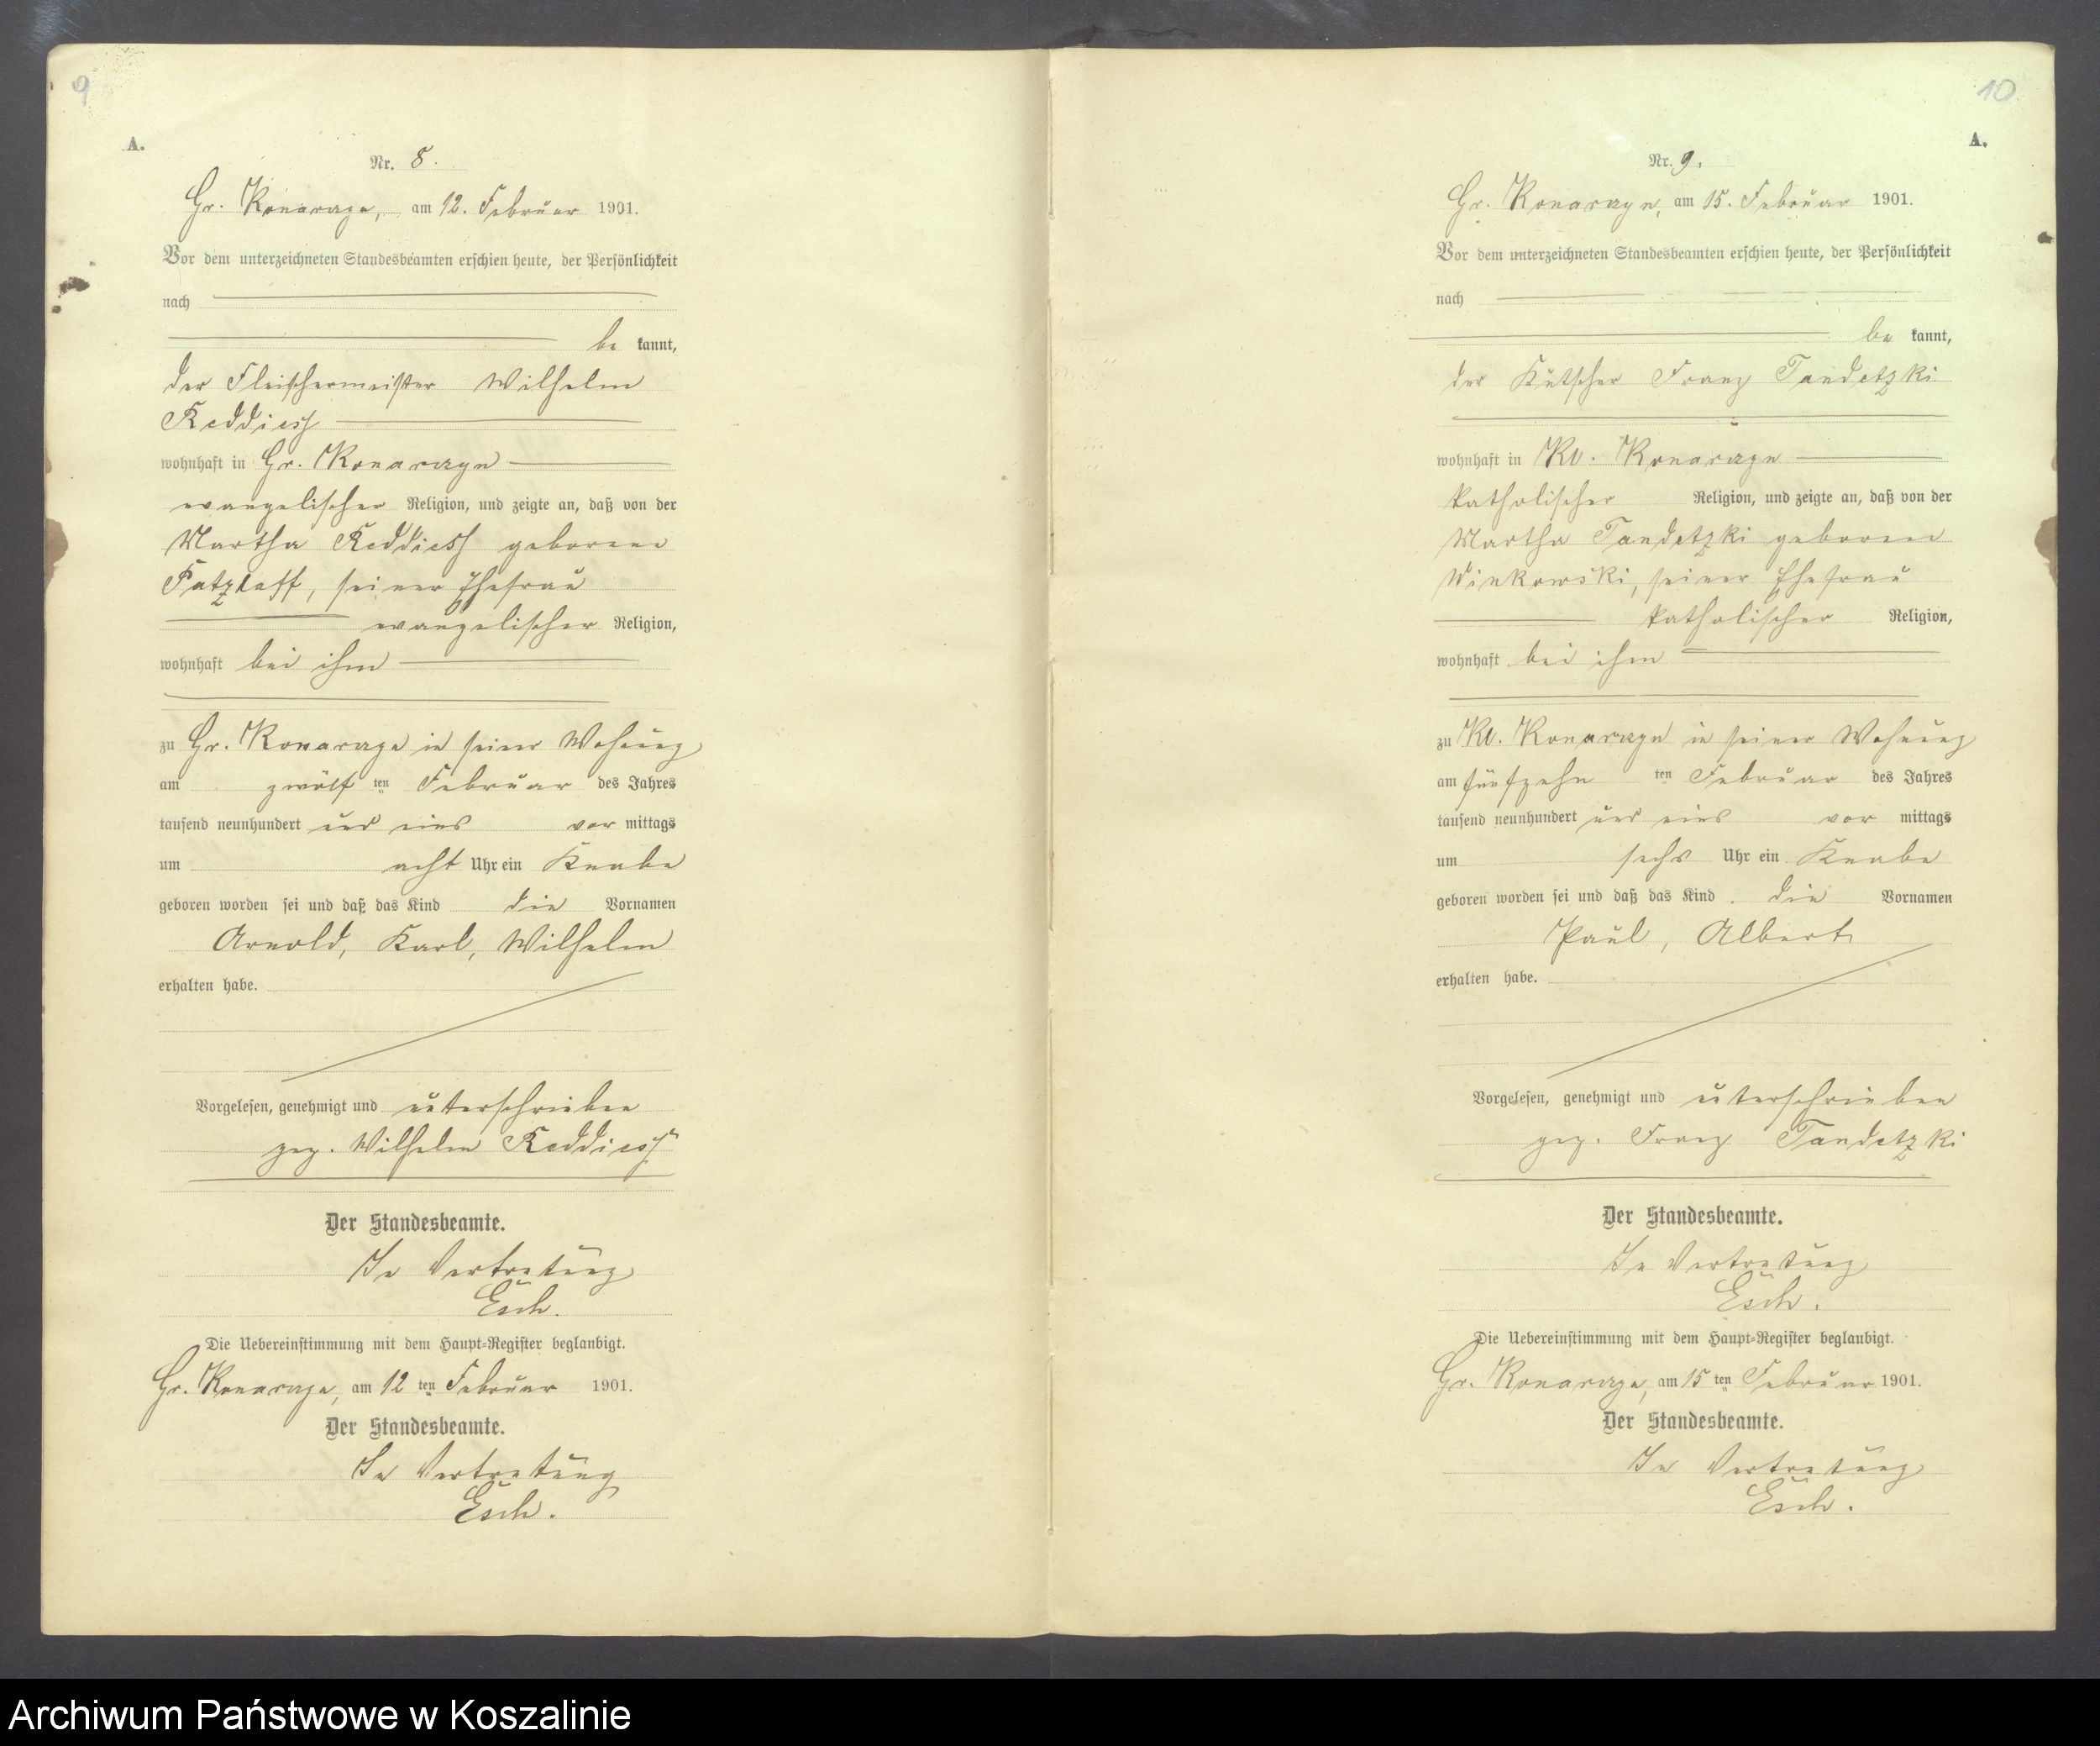 9
A.
Nr. 8.
Gr. Konarzyn, am 12. Februar 1901.
Vor dem unterzeichneten Standesbeamten erschien heute, der Persönlichkeit
nach
be kannt,
der Fleischermeister Wilhelm
Reddiess
wohnhaft in Gr. Konarzyn
evangelischer Religion, und zeigte an, daß von der
Martha Reddiess geborene
Ratzlaff, seiner Ehefrau
evangelischer Religion,
wohnhaft bei ihm
zu Gr. Konarzyn in seiner Wohnung
am zwölf ten Februar des Jahres
tausend neunhundert und eins vor mittags
um acht Uhr ein Knabe
geboren worden sei und daß das Kind die Vornamen
Arnold, Karl, Wilhelm
erhalten habe.
Vorgelesen, genehmigt und unterschrieben
gez. Wilhelm Reddiess
Der Standesbeamte.
In Vertretung
Esch.
Die Uebereinstimmung mit dem Haupt-Register beglaubigt.
Gr. Konarzyn, am 12 ten Februar 1901.
Der Standesbeamte.
In Vertretung
Esch.
10
A.
Nr. 9.
Gr. Konarzyn, am 15. Februar 1901.
Vor dem unterzeichneten Standesbeamten erschien heute, der Persönlichkeit
nach
be kannt,
der Kutscher Franz Tandetzki
wohnhaft in Kl. Konarzyn
katholischer Religion, und zeigte an, daß von der
Martha Tandetzki geborene
Winkowski, seiner Ehefrau
katholischer Religion,
wohnhaft bei ihm
zu Kl. Konarzyn in seiner Wohnung
am fünfzehn ten Februar des Jahres
tausend neunhundert und eins vor mittags
um sechs Uhr ein Knabe
geboren worden sei und daß das Kind die Vornamen
Paul, Albert
erhalten habe.
Vorgelesen, genehmigt und unterschrieben
gez. Franz Tandetzki
Der Standesbeamte.
In Vertretung
Esch.
Die Uebereinstimmung mit dem Haupt-Register beglaubigt.
Gr. Konarzyn, am 15 ten Februar 1901.
Der Standesbeamte.
In Vertretung
Esch.
Archiwum Państwowe w Koszalinie